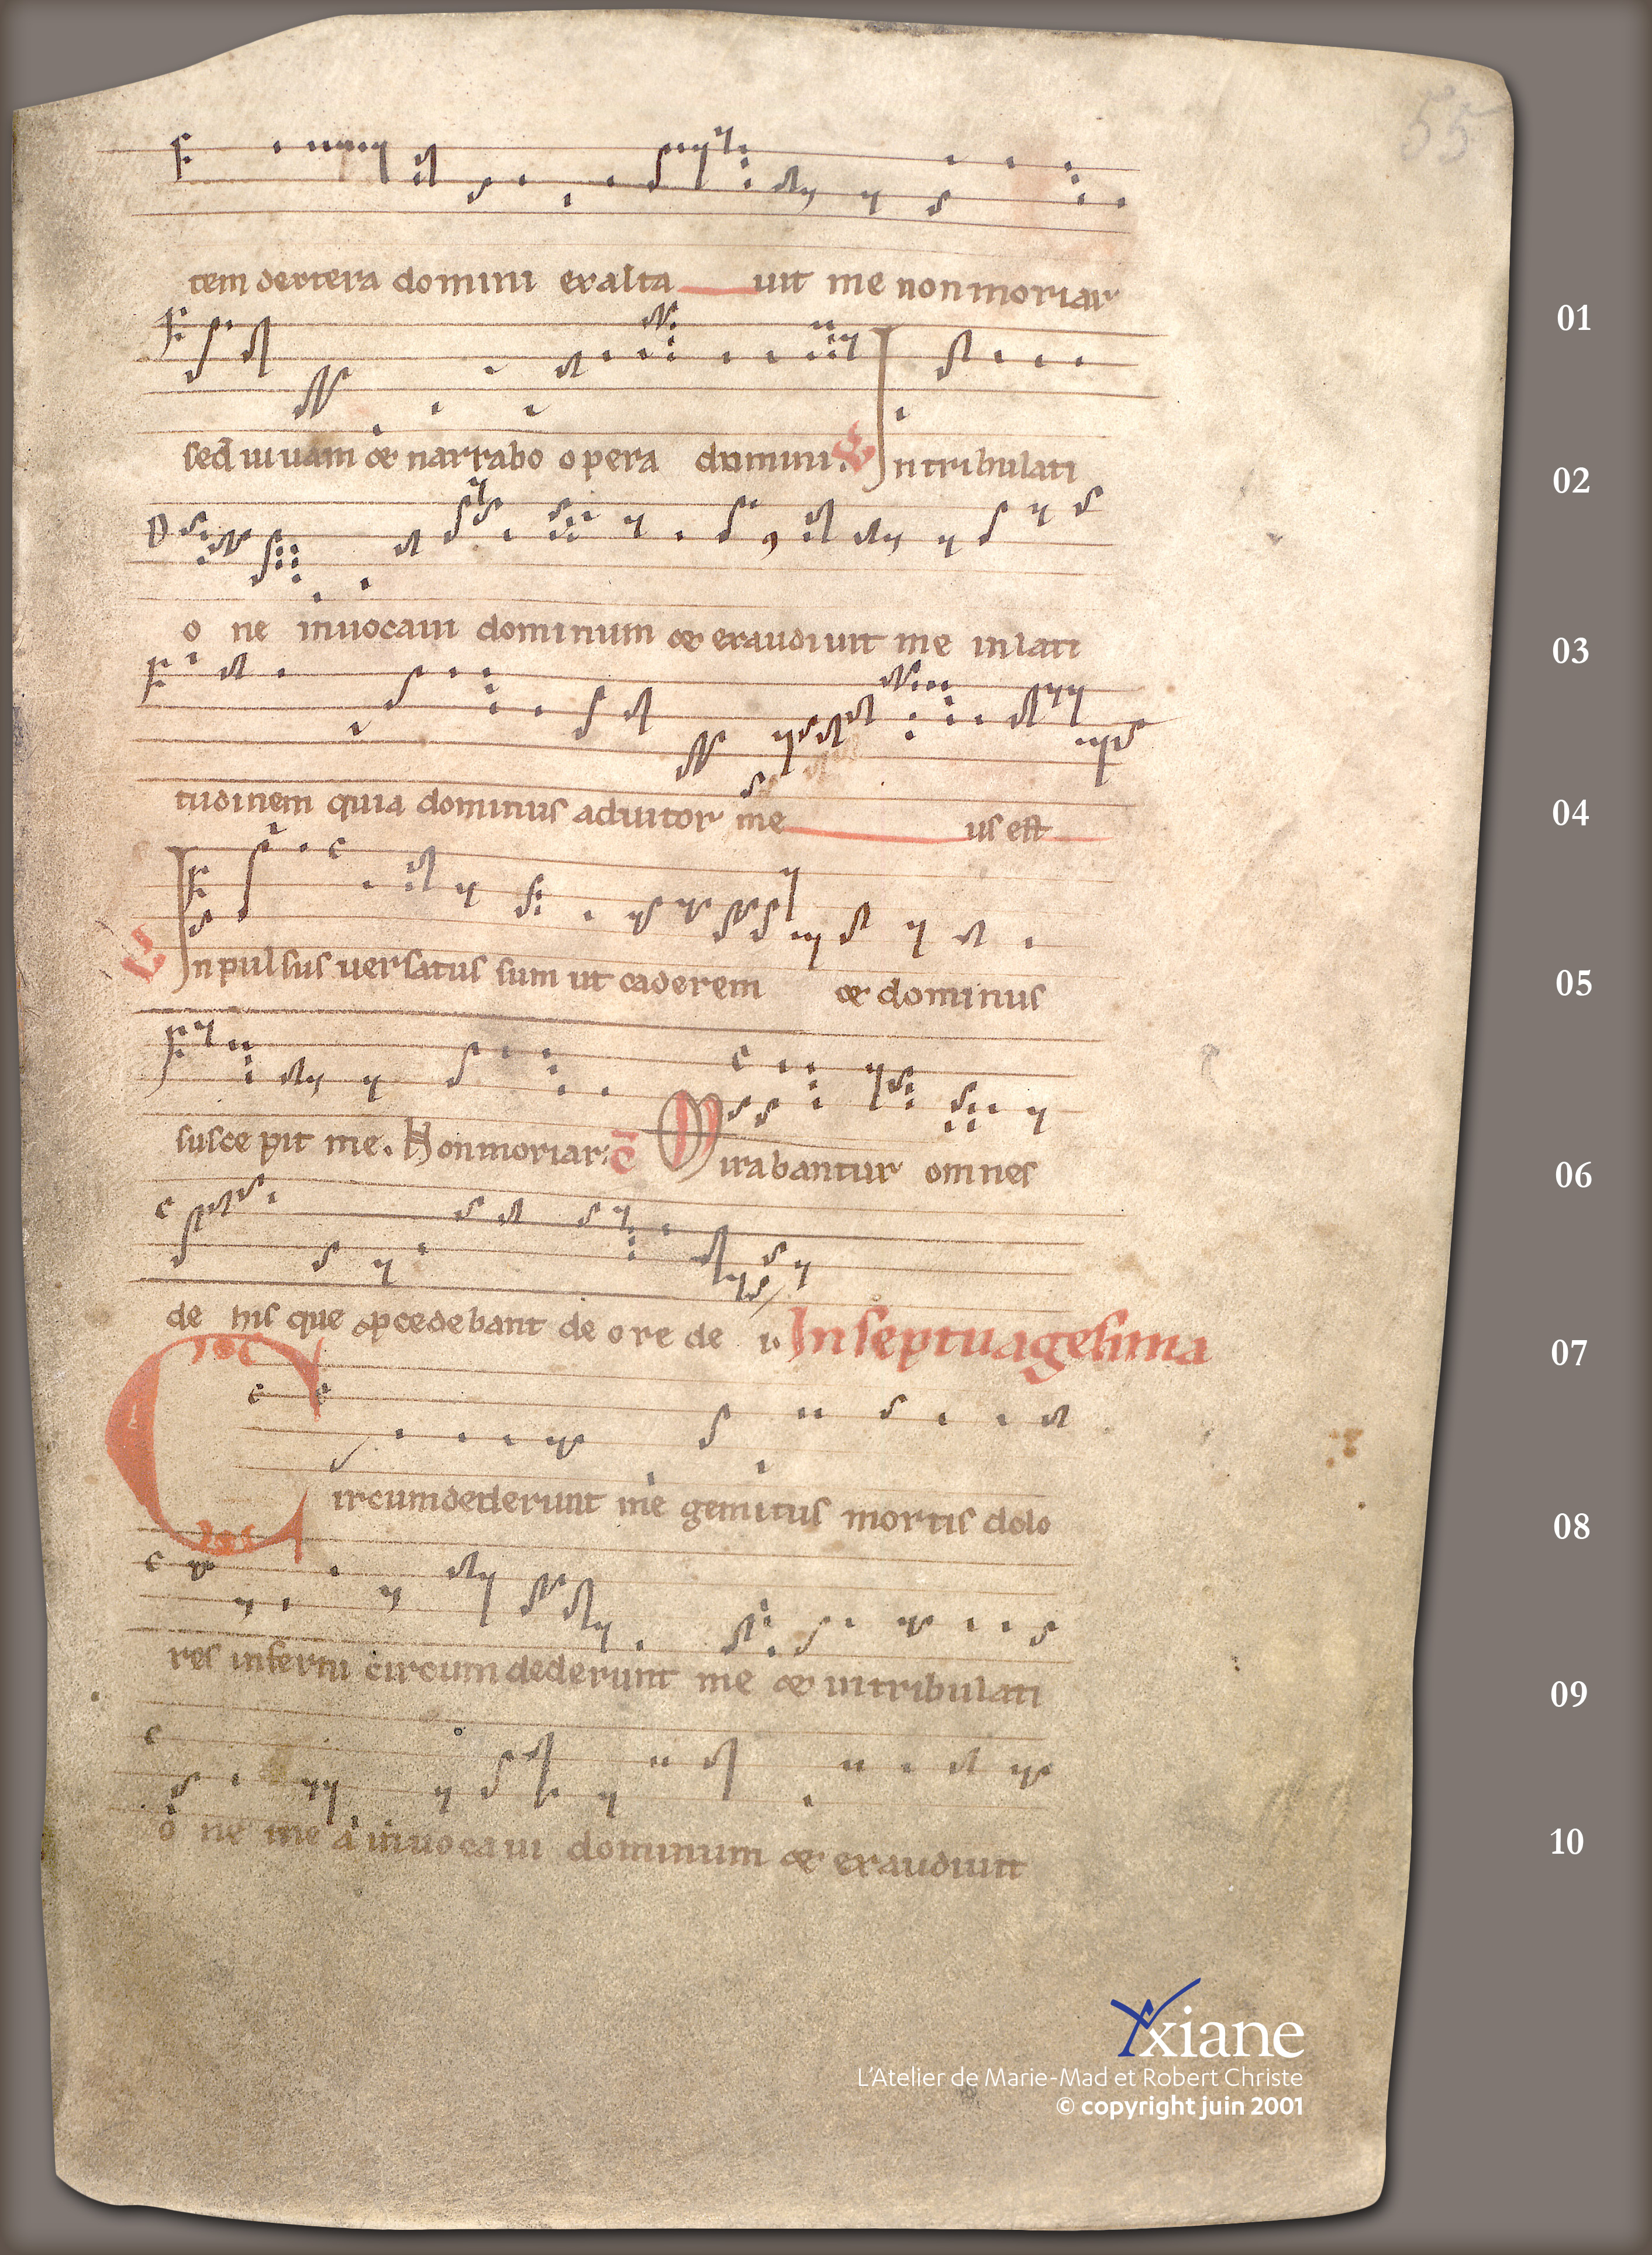 55
tem dextera domini exalta uit me non moriar
01
sed uiuam & narrabo opera domini. V In tribulati
02
o ne inuocaui dominum & exaudiuit me in lati
03
tudinem quia dominus adiutor me us est
04
V Inpulsus uersatus sum ut caderem & dominus
05
suscepit me. Non moriar: c̄ Mirabantur omnes
06
de his que ꝓcedebant de ore de i. In septuagesima
07
Circumdederunt me gemitus mortis dolo
08
res inferni circumdederunt me & in tribulati
09
o ne mea inuocaui dominum & exaudiuit
10
Axiane
L'Atelier de Marie-Mad et Robert Christe
© copyright juin 2001